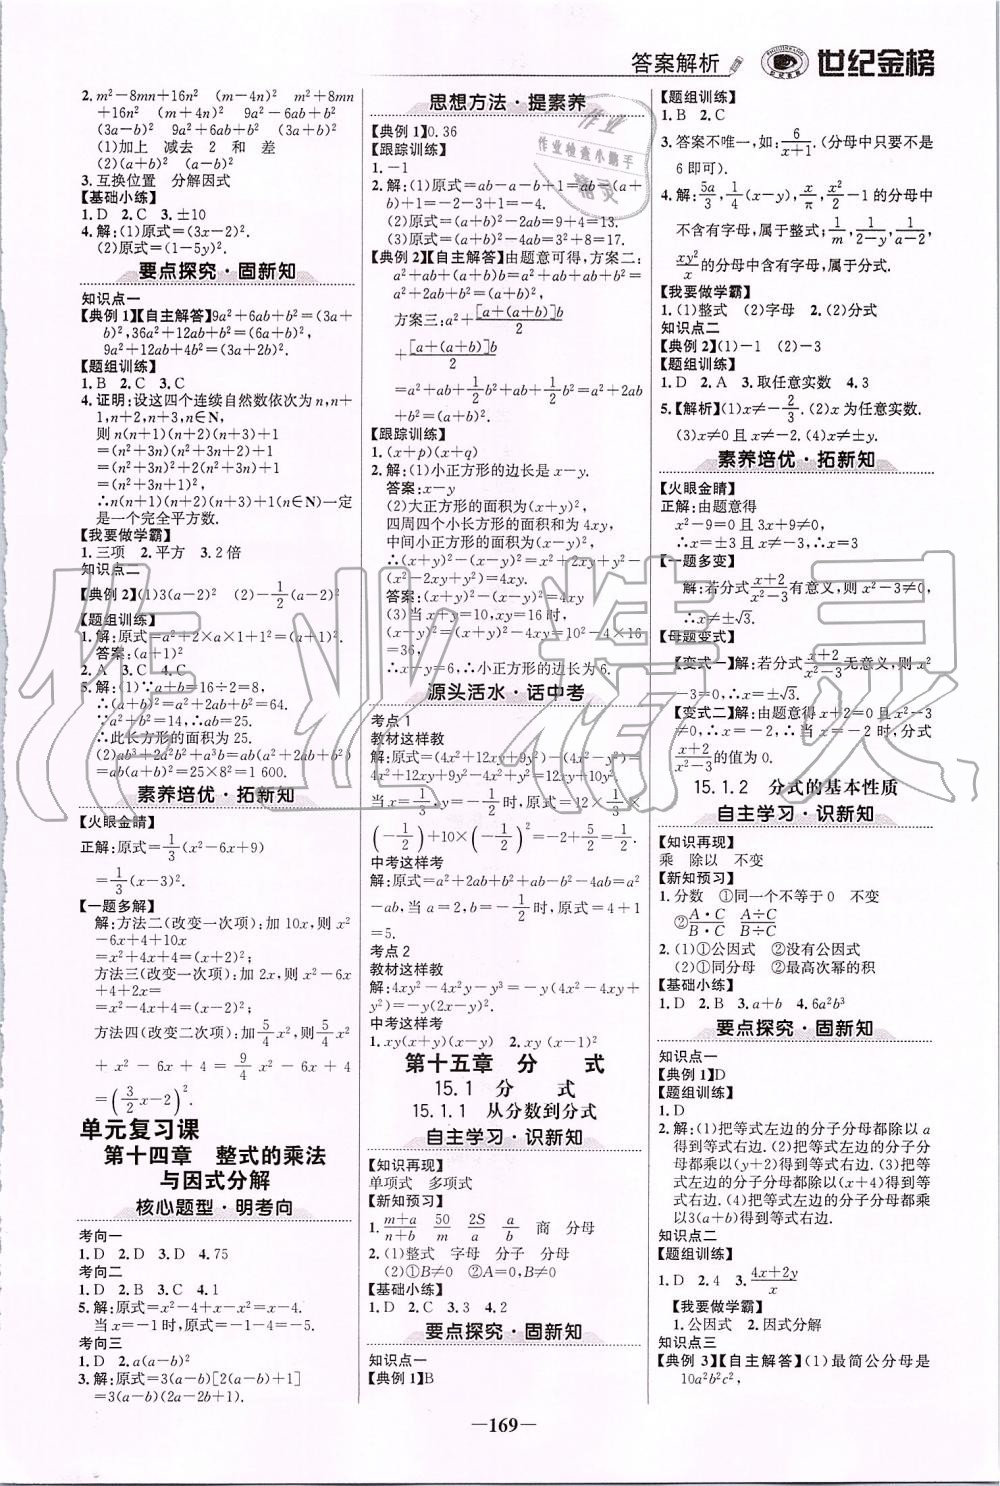 答案解析 世纪金榜
2. m²－8mn＋16n²　(m－4n)²　m²＋8mn
＋16n²　(m＋4n)²　9a²－6ab＋b²
(3a－b)²　9a²＋6ab＋b²　(3a＋b)²
(1)加上　减去　2　和　差
(2)(a＋b)²　(a－b)²
3. 互换位置　分解因式
【基础小练】
1. D　2. C　3. ±10
4. 解:(1)原式＝(3x－2)².
(2)原式＝(1－5y)².
要点探究·固新知
知识点一
【典例 1】【自主解答】9a²＋6ab＋b²＝(3a＋
b)²,36a²＋12ab＋b²＝(6a＋b)²,
9a²＋12ab＋4b²＝(3a＋2b)².
【题组训练】
1. B　2. C　3. C
4. 证明:设这四个连续自然数依次为 n,n＋
1,n＋2,n＋3,n∈N,
则 n(n＋1)(n＋2)(n＋3)＋1
＝(n²＋3n)(n²＋3n＋2)＋1
＝(n²＋3n)²＋2(n²＋3n)＋1
＝(n²＋3n＋1)²,
∴n(n＋1)(n＋2)(n＋3)＋1(n∈N)一定
是一个完全平方数.
【我要做学霸】
1. 三项　2. 平方　3. 2 倍
知识点二
【典例 2】(1)3(a－2)²　(2)－1/2(a－2)²
【题组训练】
1. 解:原式＝a²＋2×a×1＋1²＝(a＋1)².
答案:(a＋1)²
2. A　3. C　4. C
5. 解:(1)∵a＋b＝16÷2＝8,
∴(a＋b)²＝a²＋2ab＋b²＝64.
∵a²＋b²＝14,∴ab＝25.
∴此长方形的面积为 25.
(2)ab³＋2a²b²＋a³b＝ab(a²＋2ab＋b²)
＝ab(a＋b)²＝25×8²＝1 600.
素养培优·拓新知
【火眼金睛】
正解:原式＝1/3(x²－6x＋9)
＝1/3(x－3)².
【一题多解】
解:方法二(改变一次项):加 10x,则 x²
－6x＋4＋10x
＝x²＋4x＋4＝(x＋2)²;
方法三(改变一次项):加 2x,则 x²－6x
＋4＋2x＝
＝x²－4x＋4＝(x－2)²;
方法四(改变二次项):加 5/4x²,则 5/4x²
＋ x² － 6x ＋ 4 ＝ 9/4x² － 6x ＋ 4
＝(3/2x－2)².
单元复习课
第十四章　整式的乘法
与因式分解
核心题型·明考向
考向一
1. D　2. D　3. D　4. 75
考向二
1. D　2. B　3. C　4. 1
5. 解:原式＝x²－4＋x－x²＝x－4.
当 x＝－1 时,原式＝－1－4＝－5.
考向三
1. D　2. a(a－b)²
3. 解:原式＝3(a－b)[2(a－b)＋1]
＝3(a－b)(2a－2b＋1).
思想方法·提素养
【典例 1】0.36
【跟踪训练】
1. －1
2. 解:(1)原式＝ab－a－b＋1＝ab－(a＋
b)＋1＝－2－3＋1＝－4.
(2)原式＝(a＋b)²－2ab＝9＋4＝13.
(3)原式＝(a＋b)²－4ab＝3²＋8＝17.
【典例 2】【自主解答】由题意可得,方案二:
a²＋ab＋(a＋b)b＝a²＋ab＋ab＋b²＝
a²＋2ab＋b²＝(a＋b)²,
方案三:a²＋[a＋(a＋b)]b/2
＋[a＋(a＋b)]b/2
＝a²＋ab＋1/2b²＋ab＋1/2b²＝a²＋2ab
＋b²＝(a＋b)².
【跟踪训练】
1. (x＋p)(x＋q)
2. 解:(1)小正方形的边长是 x－y.
答案:x－y
(2)大正方形的面积为(x＋y)²,
四周四个小长方形的面积和为 4xy,
中间小正方形的面积为(x－y)²,
∴(x＋y)²－(x－y)²＝x²＋2xy＋y²－
(x²－2xy＋y²)＝4xy.
答案:(x＋y)²－(x－y)²＝4xy
(3)当 x＋y＝10,xy＝16 时,
(x－y)²＝(x＋y)²－4xy＝10²－4×16
＝36,
∴x－y＝6,∴小正方形的边长为 6.
源头活水·话中考
考点 1
教材这样教
解:原式＝(4x²＋12xy＋9y²)－(4x²－y²)＝
4x²＋12xy＋9y²－4x²＋y²＝12xy＋10y².
当 x＝1/3,y＝－1/2时,原式＝12×1/3×
(－1/2)＋10×(－1/2)²＝－2＋5/2＝1/2.
中考这样考
解:原式＝a²＋2ab＋b²＋ab－b²－4ab＝a²
－ab,当 a＝2,b＝－1/2时,原式＝4＋1
＝5.
考点 2
教材这样教
解:4xy²－4x²y－y³＝－y(4x²－4xy＋
y²)＝－y(2x－y)².
中考这样考
1. xy(x＋y)(x－y)　2. xy (x－1)²
第十五章　分　　式
15.1　分　　式
15.1.1　从分数到分式
自主学习·识新知
【知识再现】
单项式　多项式
【新知预习】
1. (m＋a)/(n＋b)　50/m　2S/a　a/b　商　分母
2. (1)整式　字母　分子　分母
(2)①B≠0　②A＝0　B≠0
【基础小练】
1. D　2. C　3. 3　4. 2
要点探究·固新知
知识点一
【典例 1】B
【题组训练】
1. B　2. C
3. 答案不唯一,如:6/(x＋1).(分母中只要不是
6 即可).
4. 解:5a/3,1/4(x－y),x/π,x²/2－1 的分母中
不含有字母,属于整式;1/m,1/(2－y),1/(a－2),
xy²/x的分母中含有字母,属于分式.
【我要做学霸】
1. (1)整式　(2)字母　(2)分式
知识点二
【典例 2】(1)－1　(2)－3
【题组训练】
1. D　2. A　3. 取任意实数　4. 3
5.【解析】(1)x≠－2/3.(2)x 为任意实数.
(3)x≠0 且 x≠－2.(4)x≠±y.
素养培优·拓新知
【火眼金睛】
正解:由题意得
x²－9＝0 且 3x＋9≠0,
∴x＝±3 且 x≠－3,∴x＝3
【一题多变】
解:若分式(x＋2)/(x²－3)有意义,则 x²－3≠0,
∴x≠±√3.
【母题变式】
【变式一】解:若分式(x＋2)/(x²－3)无意义,则 x²
－3＝0,∴x＝±√3.
【变式二】解:由题意得 x＋2＝0 且 x²－3
≠0,∴x＝－2,∴当 x＝－2 时,分式
(x＋2)/(x²－3)的值为 0.
15.1.2　分式的基本性质
自主学习·识新知
【知识再现】
乘　除以　不变
【新知预习】
1. 分数　①同一个不等于 0　不变
②A·C/B·C　A÷C/B÷C
2. (1)①公因式　②没有公因式
(2)①同分母　②最高次幂的积
【基础小练】
1. D　2. B　3. a＋b　4. 6a²b³
要点探究·固新知
知识点一
【典例 1】D
【题组训练】
1. D
2. 解:(1)把等式左边的分子分母都除以 a
得到等式右边.(2)把等式左边的分子分
母都乘以(y＋2)得到等式右边.(3)把等
式左边的分子分母都除以(x＋4)得到等
式右边.(4)把等式左边的分子分母都乘
以3(a－b)得到等式右边.
知识点二
【题组训练】
1. D　2. 4　3. (4x＋2y)/x
【我要做学霸】
1. 公因式　2. 因式分解
知识点三
【典例 3】【自主解答】(1)最简公分母是
10a²b²c²,
—169—